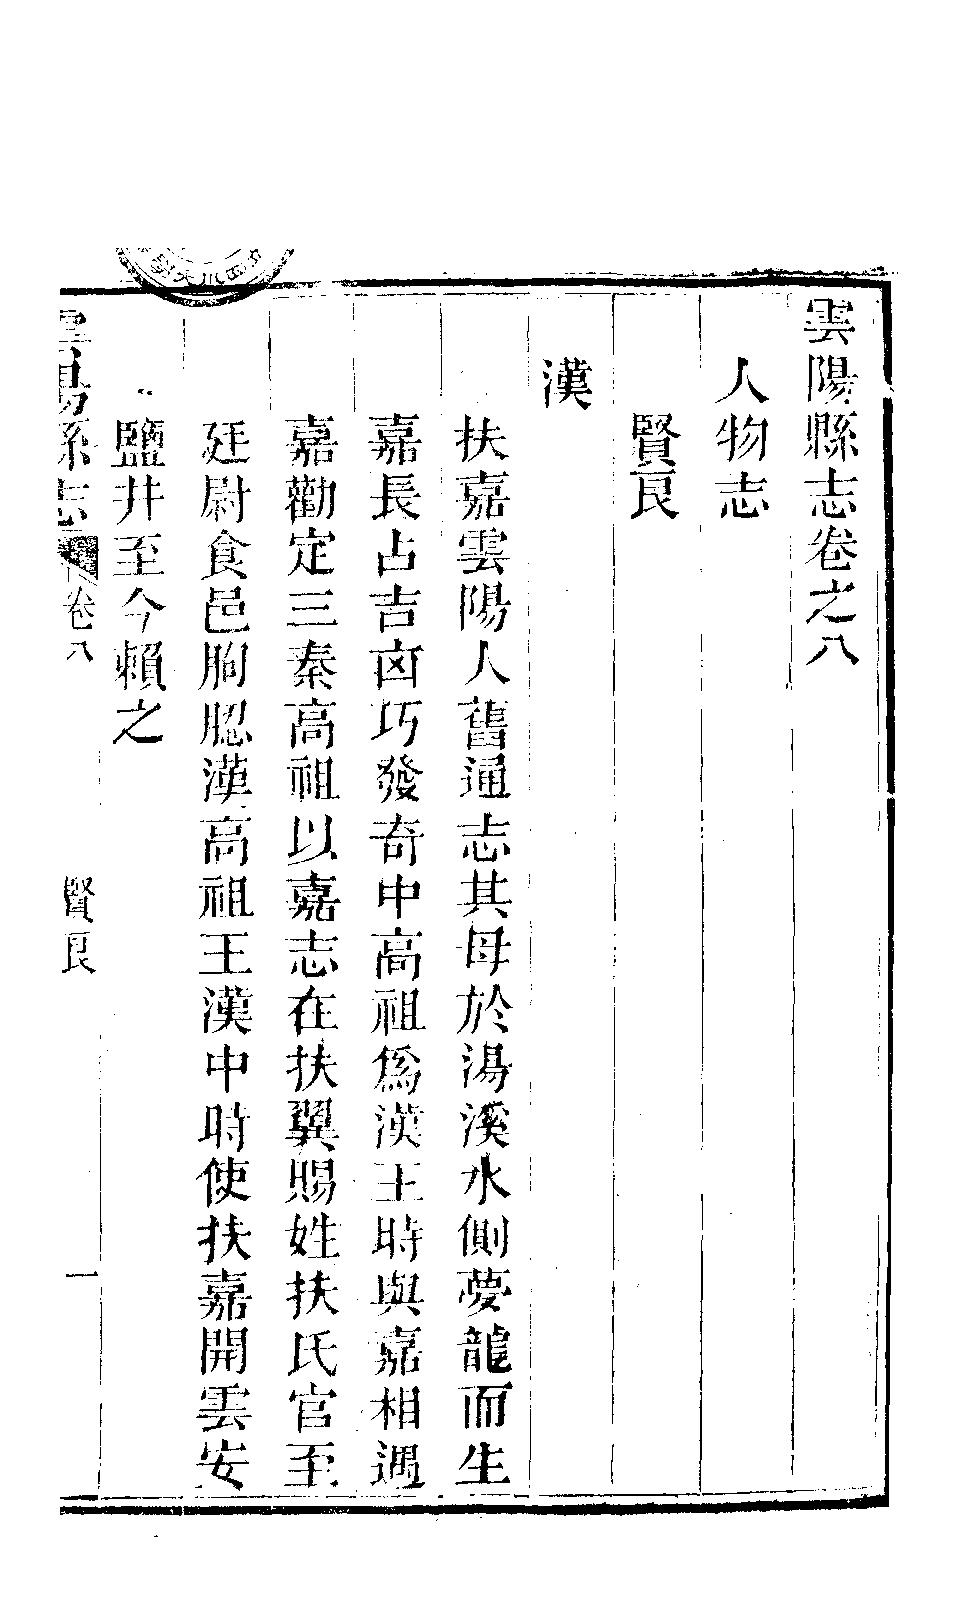 雲陽縣志卷之八
人物志
賢良
漢
扶嘉雲陽人舊通志其母於湯溪水側夢龍而生
嘉長占吉㐫巧發奇中高祖為漢王時與嘉相遇
嘉勸定三秦高祖以嘉志在扶翼賜姓扶氏官至
廷尉食邑朐䏰漢高祖王漢中時使扶嘉開雲安
鹽井至今賴之
雲陽縣志 卷八 賢良 一